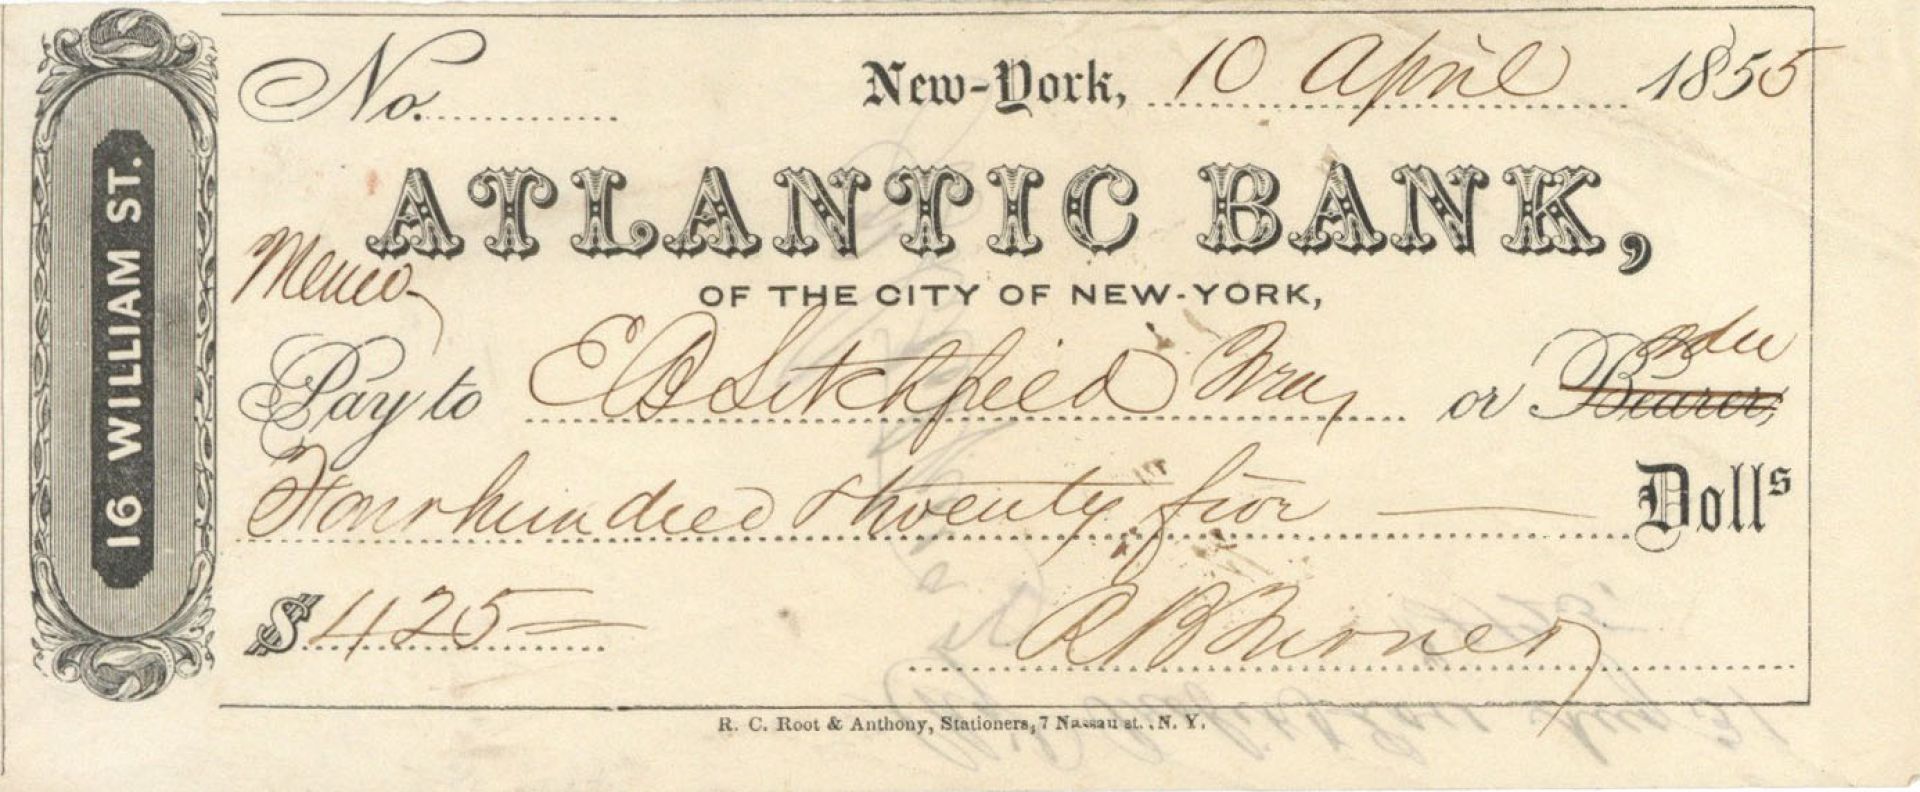 16 WILLIAM ST.
No.
New-York, 10 April 1855
ATLANTIC BANK,
Memo
OF THE CITY OF NEW-YORK,
Pay to E B Litchfield Trea, or Bearer, order
Four hundred & twenty five — Dolls
$ 425 =
R. C. Root & Anthony, Stationers, 7 Nassau st., N. Y.